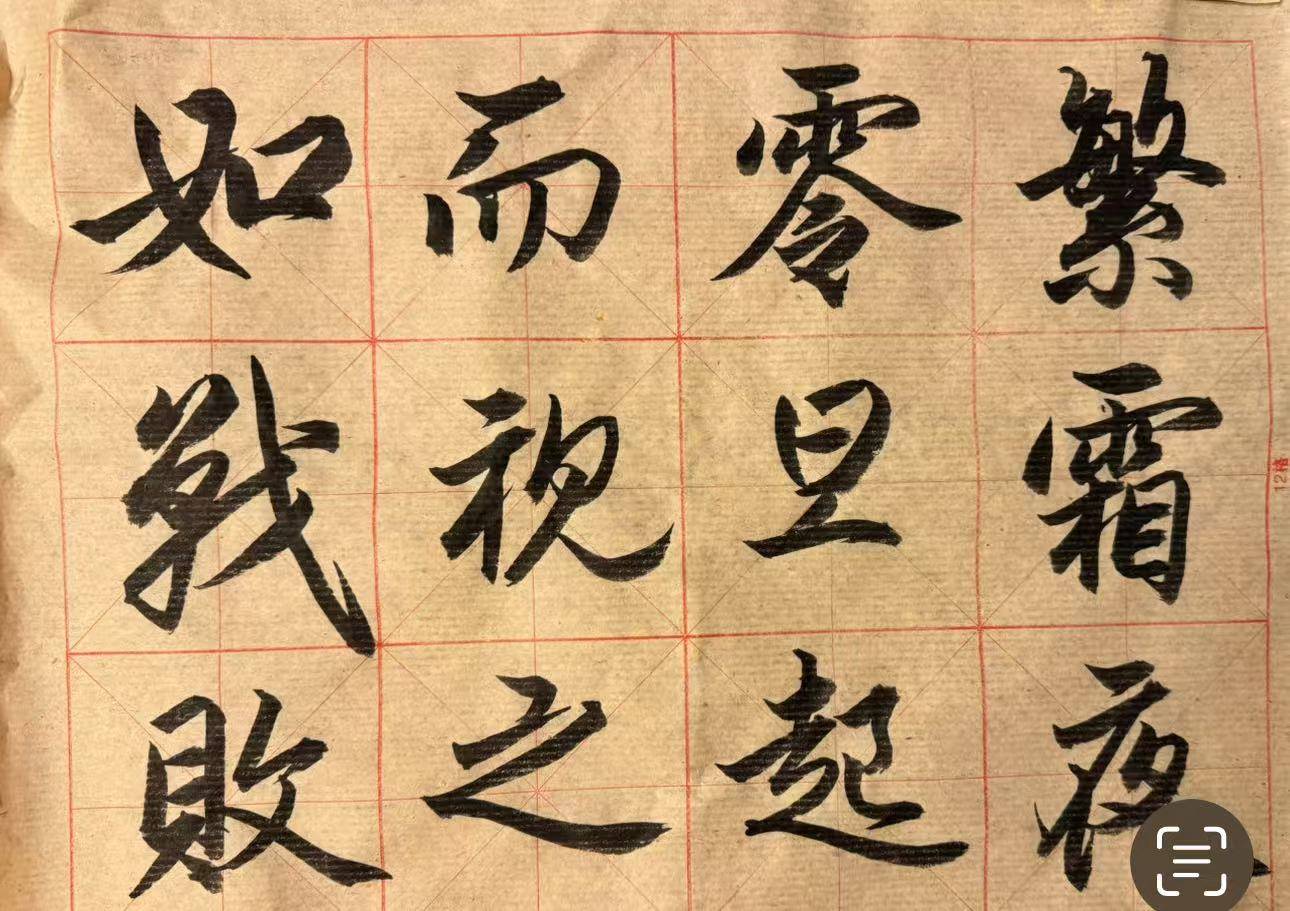 繁霜夜
零旦起
而視之
如戰敗
12格